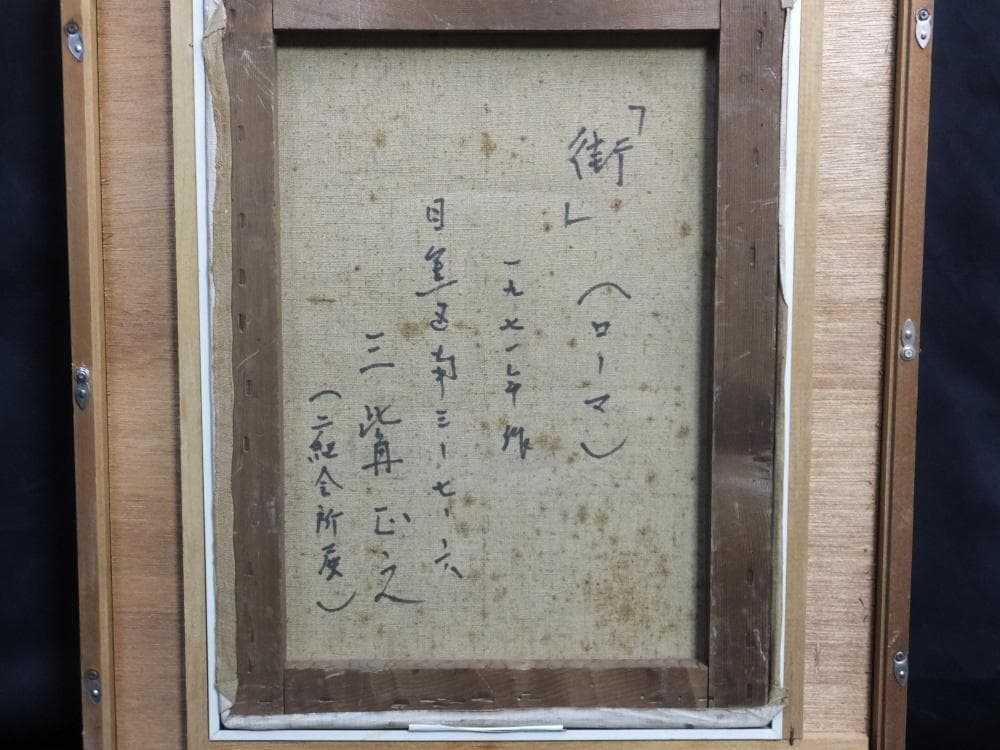 「街」（ローマ）
一九七一年作
目黒区南三ー七ー六
三觜正之
（二紀会所属）